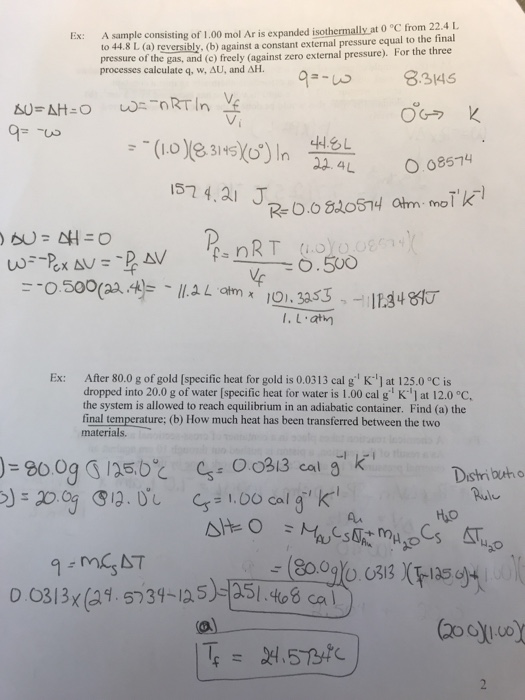 Ex: A sample consisting of 1.00 mol Ar is expanded isothermally at 0 °C from 22.4 L
to 44.8 L (a) reversibly, (b) against a constant external pressure equal to the final
pressure of the gas, and (c) freely (against zero external pressure). For the three
processes calculate q, w, ΔU, and ΔH.
q=-w 8.3145
ΔU=ΔH=0 w=-nRT ln Vf/Vi 0°C→ K
q= -w
= -(1.0)(8.3145)(0°) ln 44.8L/22.4L 0.08574
1574.21 J
R=0.0820574 atm·mol⁻¹K⁻¹
) ΔU = ΔH = 0 Pf = nRT/Vf = 0.500
w=-Pex ΔV = -Pf ΔV
= -0.500(22.4L)= -11.2 L atm × 101.325J/1.L·atm = -11.3484J
Ex: After 80.0 g of gold [specific heat for gold is 0.0313 cal g⁻¹ K⁻¹] at 125.0 °C is
dropped into 20.0 g of water [specific heat for water is 1.00 cal g⁻¹ K⁻¹] at 12.0 °C,
the system is allowed to reach equilibrium in an adiabatic container. Find (a) the
final temperature; (b) How much heat has been transferred between the two
materials.
)= 80.0g @ 125.0°C Cs= 0.0313 cal g⁻¹ K⁻¹ Distributio
) = 20.0g @12.0°C Cs=1.00 cal g⁻¹ K⁻¹ Rule
ΔH= 0 = MAu Cs ΔTAu + mH2O Cs H2O ΔTH2O
q=mCsΔT = (80.0g)(0.0313)(Tf-125.0)+
0.0313×(24.5734-125)= 251.468 cal
(20.0)(1.00)(
(a)
Tf = 24.5734°C
2